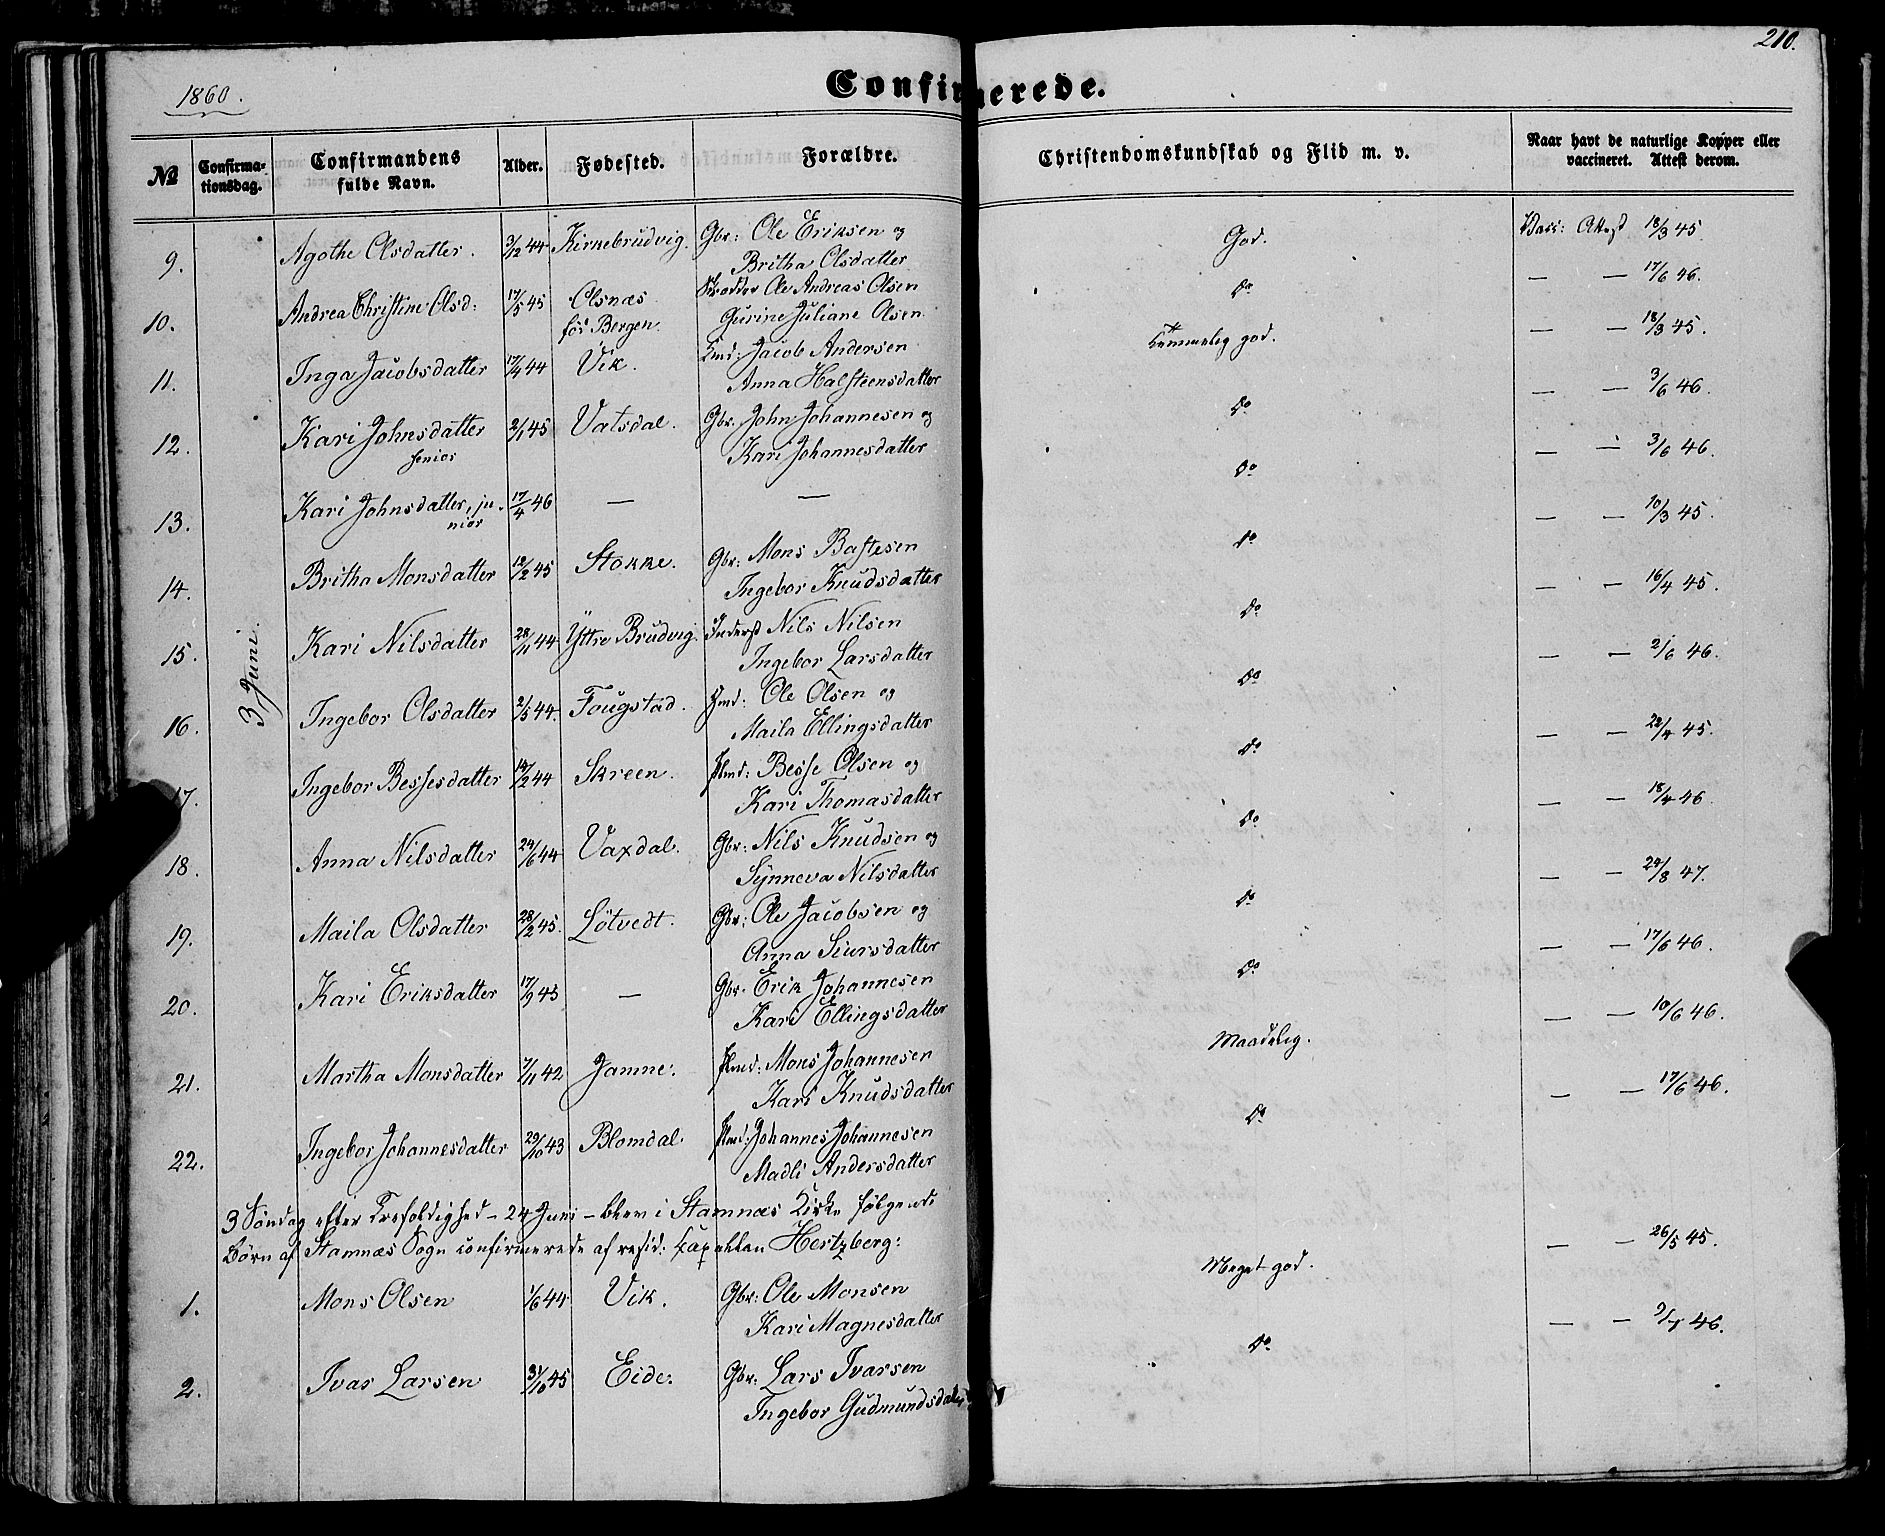 210.
1860.
Confirmerede.
№ Confirmationsdag. Confirmandens fulde Navn. Alder. Fødested. Forældre. Christendomskundskab og Flid m. v. Naar havt de naturlige Kopper eller vaccineret. Attest derom.
3 Juni.
9. Agothe Olsdatter. 3/12 44 Kirkebrudvig. Gbr: Ole Eriksen og God. Vacc: Attest 18/3 45.
Britha Olsdatter
10. Andrea Christine Olsd: 17/5 45 Olsnæs Skrædder Ole Andreas Olsen Do — — 17/6 46.
før Bergen. Gurine Juliane Olsen
11. Inga Jacobsdatter 17/4 44 Vik. Hmd: Jacob Andersen Temmelig god. — — 18/3 45.
Anna Halsteensdatter
12. Kari Johnsdatter 2/1 45 Vatsdal. Gbr. John Johannesen og Do — — 3/6 46.
senior Kari Johannesdatter
13. Kari Johnsdatter, ju- 17/4 46 — — Do — — 3/6 46.
nior
14. Britha Monsdatter 12/2 45 Stokke. Gbr: Mons Baftesen Do — — 10/3 45.
Ingebor Knudsdatter
15. Kari Nilsdatter 28/11 44 Yttre Brudvig. Inderst Nils Nilsen Do — — 16/4 45.
Ingebor Larsdatter
16. Ingebor Olsdatter 2/5 44. Fougstad. Hmd: Ole Olsen og Do — — 2/6 46.
Maila Ellingsdatter
17. Ingebor Bessesdatter 14/2 44 Skreen. Hmd: Besse Olsen og Do — — 22/4 45.
Kari Thomasdatter
18. Anna Nilsdatter 24/6 44 Vaxdal. Gbr: Nils Knudsen og Do — — 18/4 46
Synneva Nilsdatter
19. Maila Olsdatter 28/2 45. Lötvedt. Gbr: Ole Jacobsen og Do — — 24/8 47.
Anna Siursdatter
20. Kari Eriksdatter 17/9 45 — Gbr. Erik Johannesen Do — — 17/6 46.
Kari Ellingsdatter
21. Martha Monsdatter 7/11 42 Jamne. Hmd: Mons Johannesen Maadelig. — — 10/6 46.
Kari Knudsdatter
22. Ingebor Johannesdatter 29/10 43 Blomdal. Hmd: Johannes Johannesen Do — — 17/6 46.
Madli Andersdatter
3 Söndag efter Trefoldighed – 24 Juni – blev i Stamnæs Kirke følgende
Børn af Stamnæs Sogn confirmerede af resid: Capellan Hertzberg:
1. Mons Olsen 1/6 44 Vik. Gbr: Ole Monsen Meget god. — — 26/5 45.
Kari Magnesdatter
2. Ivar Larsen 31/10 45 Eide. Gbr: Lars Ivarsen Do — — 9/7 46.
Ingebor Gudmundsdatter